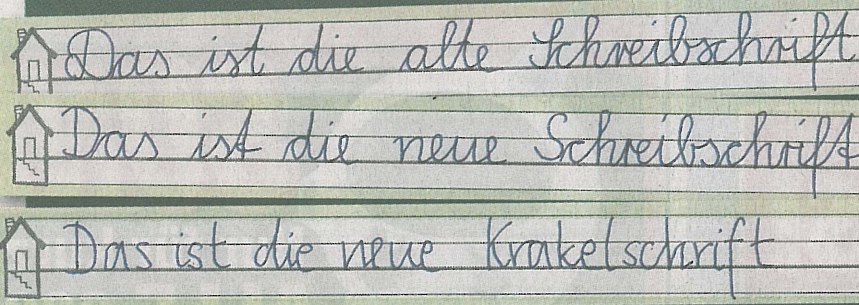 Das ist die alte Schreibschrift
Das ist die neue Schreibschrift
Das ist die neue Krakelschrift